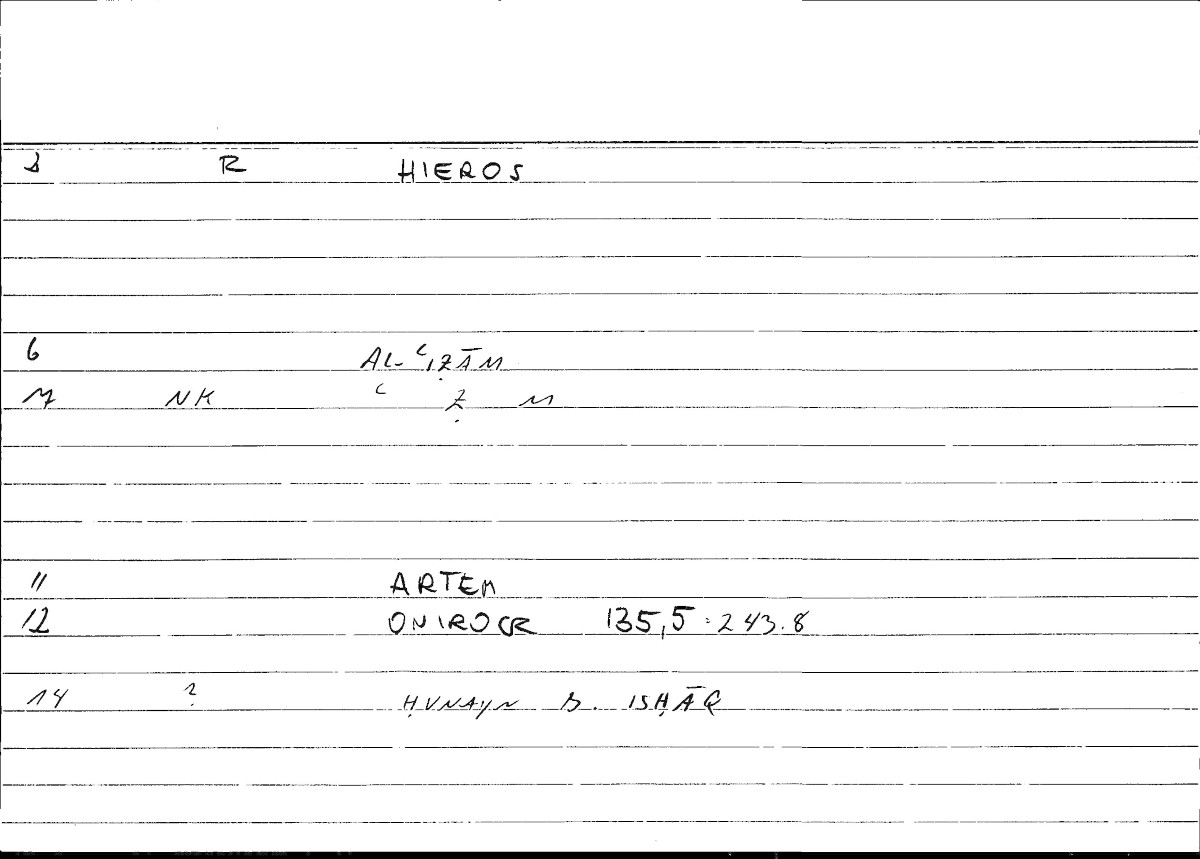 R HIEROS
6 AL-ʿIẒĀM
7 NK ʿ Ẓ M
11 ARTEM
12 ONIROCR 135,5 : 243.8
14 ? ḤUNAYN B. ISḤĀQ